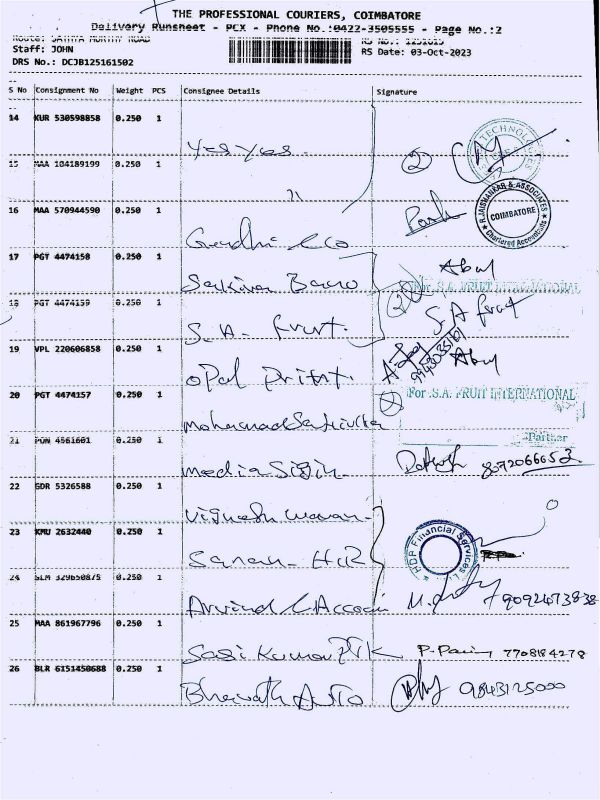 THE PROFESSIONAL COURIERS, COIMBATORE
Delivery Runsheet - PCX - Phone No.:0422-3505555 - Page No.:2
Route: SATHYA MURTHY ROAD
Staff: JOHN
RS Date: 03-Oct-2023
DRS No.: DCJB125161502
S No Consignment No Weight PCS Consignee Details Signature
14 KUR 530598858 0.250 1
TECHNOLOGIES
Yes yes.
15 MAA 184189199 0.250 1
2
"
16 MAA 570944590 0.250 1
R.JAISHANKAR & ASSOCIATES
COIMBATORE
Chartered Accountants
Gandhi & Co
17 PGT 4474158 0.250 1
Abul
For S.A. FRUIT INTERNATIONAL
18 PGT 4474159 0.250 1
2
S.A fruit
S.A. fruit.
19 VPL 220606858 0.250 1
Abul
opal print.
20 PGT 4474157 0.250 1
For S.A. FRUIT INTERNATIONAL
Partner
21 PON 4561601 0.250 1
media sign 8072066653
22 GDR 5326588 0.250 1
23 KMU 2632440 0.250 1
HDP Financial Services
24 SLM 329650875 0.250 1
9092473838
25 MAA 861967796 0.250 1
Sasi Kumar 7708184278
26 BLR 6151450688 0.250 1
Bharath Auto 9843125000